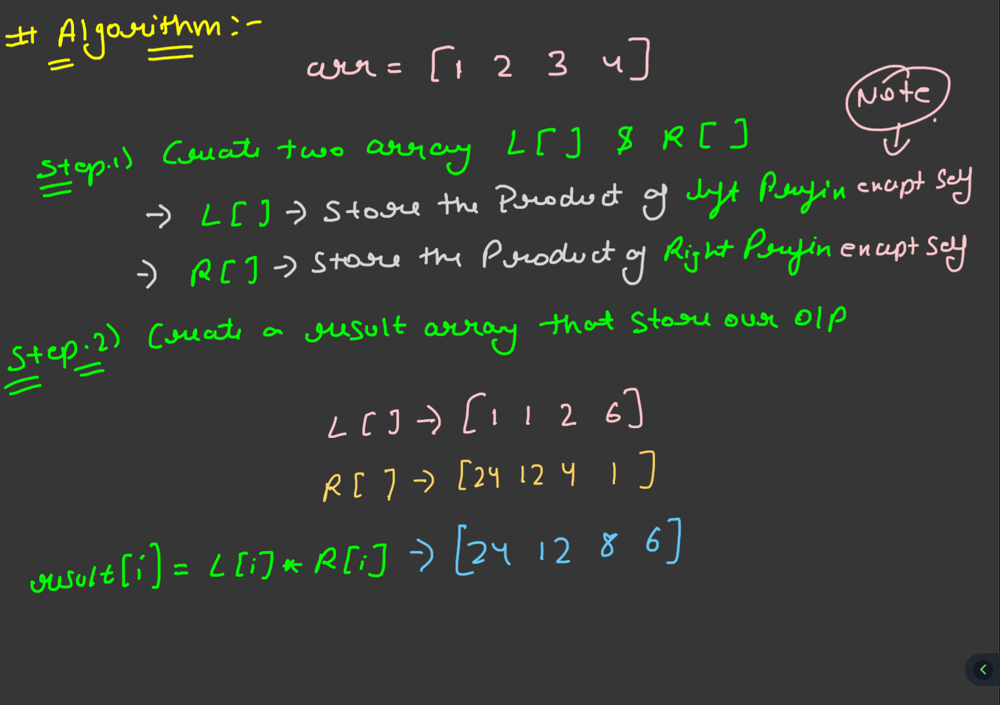 # Algorithm:-
arr = [1 2 3 4]
Note
Step.1) Create two array L[] & R[]
→ L[] → Store the Product of left Prefix except self
→ R[] → Store the Product of Right Prefix except self
Step.2) Create a result array that store our O/P
L[] → [1 1 2 6]
R[] → [24 12 4 1]
result[i] = L[i] * R[i] → [24 12 8 6]